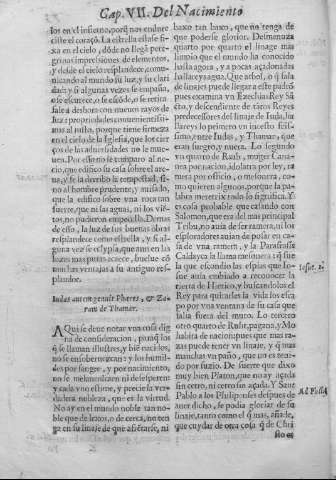 Cap. VII. Del Nacimiento
los en el infierno, porq̃ nos enamore
este el coraçõ. La estrella esta se fi-
xa en el cielo, dõde no llegã pere-
grinas impressiones de elementos,
y desde el cielo resplandece, comu-
nicando al mundo su luz, y su clari
dad, y si algunas vezes se empaña,
o se escurece, o se escõde, o se retira
sale a deshora con nueuos rayos de
luz: propriedades conuenientissi-
mas al justo, porque tiene firmeza
en el cielo de la Iglesia, que los cier
ços de las aduersidades no le mue-
uen. Por esso no se turbarõ al ne-
cio, que edifico su casa sobre el are-
na, y se la derribò la tempestad, si-
no al hombre prudente, y mirado,
que la edifico sobre vna roca tan
fuerte, que ni las aguas, ni los viẽ-
tos, no pudieron empecella. Demas
de esso, la luz de sus buenas obras
resplandece como estrella, y si al-
guna vez se eclypsa, que aun en las
luzes mas puras acaece, buelue cõ
muchas ventajas a su antiguo res-
plandor.
Iudas autem genuit Phares, & Za-
ram de Thamar.
AQui se deue notar vna cosa dig
na de consideracion, porq̃ los
q̃ se llaman illustres, y biẽ nacidos,
no se ensoberuezcan: y los humil-
des por sangre, y por nacimiento,
no se melancolizen ni desesperen,
y cada vno estime, y precie la ver-
dadera nobleza, que es la virtud.
No ay en el mundo noble tan no-
ble que de lexos, o de cerca, no ten
ga en su linaje de que afrẽtarse, ni
baxo tan baxo, que no tenga de
que poderse gloriar. Desmenuza
quarto por quarto el linage mas
limpio que el mundo ha conocido
hasta agora, y a pocas açadonadas
hallareys agua. Que arbol, o q̃ sala
de linajes puede llegar a este padrõ
pues examina vn Ezechias Rey Sã
cto, y descendiente de tantos Reyes
predecessores del linaje de Iuda, ha
llareys lo primero vn incesto feis-
simo, entre Iudas, y Thamar, que
eran suegro, y nuera. Lo segundo
vn quarto de Raab, muger Cana-
nea por nacion, idolatra por ley, ra
mera por officio, o mesonera, co-
mo quieren algunos, porque la pa-
labra meretrix todo lo significa. Y
es cosa probable que casando con
Salomon, que era del mas principal
Tribu, no auia de ser ramera, ni los
exploradores auian de posar en ca-
sa de vna ramera, y la Parafrasis
Caldayca la llama mesonera q̃ fue
la que escondio las espias que Io-
sue auia embiado a reconocer la
tierra de Hierico, y buscandolos el
Rey para quitarles la vida los esca-
po por vna ventana de su casa que
salia fuera del muro. Lo tercero
otro quarto de Ruth, pagana, y Mo
habita de nacion: pues que mas ra-
zas puede tener vn linaje, o q̃ mas
manchas vn paño, que no es teni-
do por suzio. De suerte que dixo
muy bien Platon, que no ay açada
sin cetro, ni cetro sin açada. Y Sant
Pablo a los Philipenses despues de
auer dicho, se podia gloriar de su
linaje, tanto como el q̃ mas, añade,
que cuydar de otra cosa q̃ de Chri
sto es
Iosue. 2.